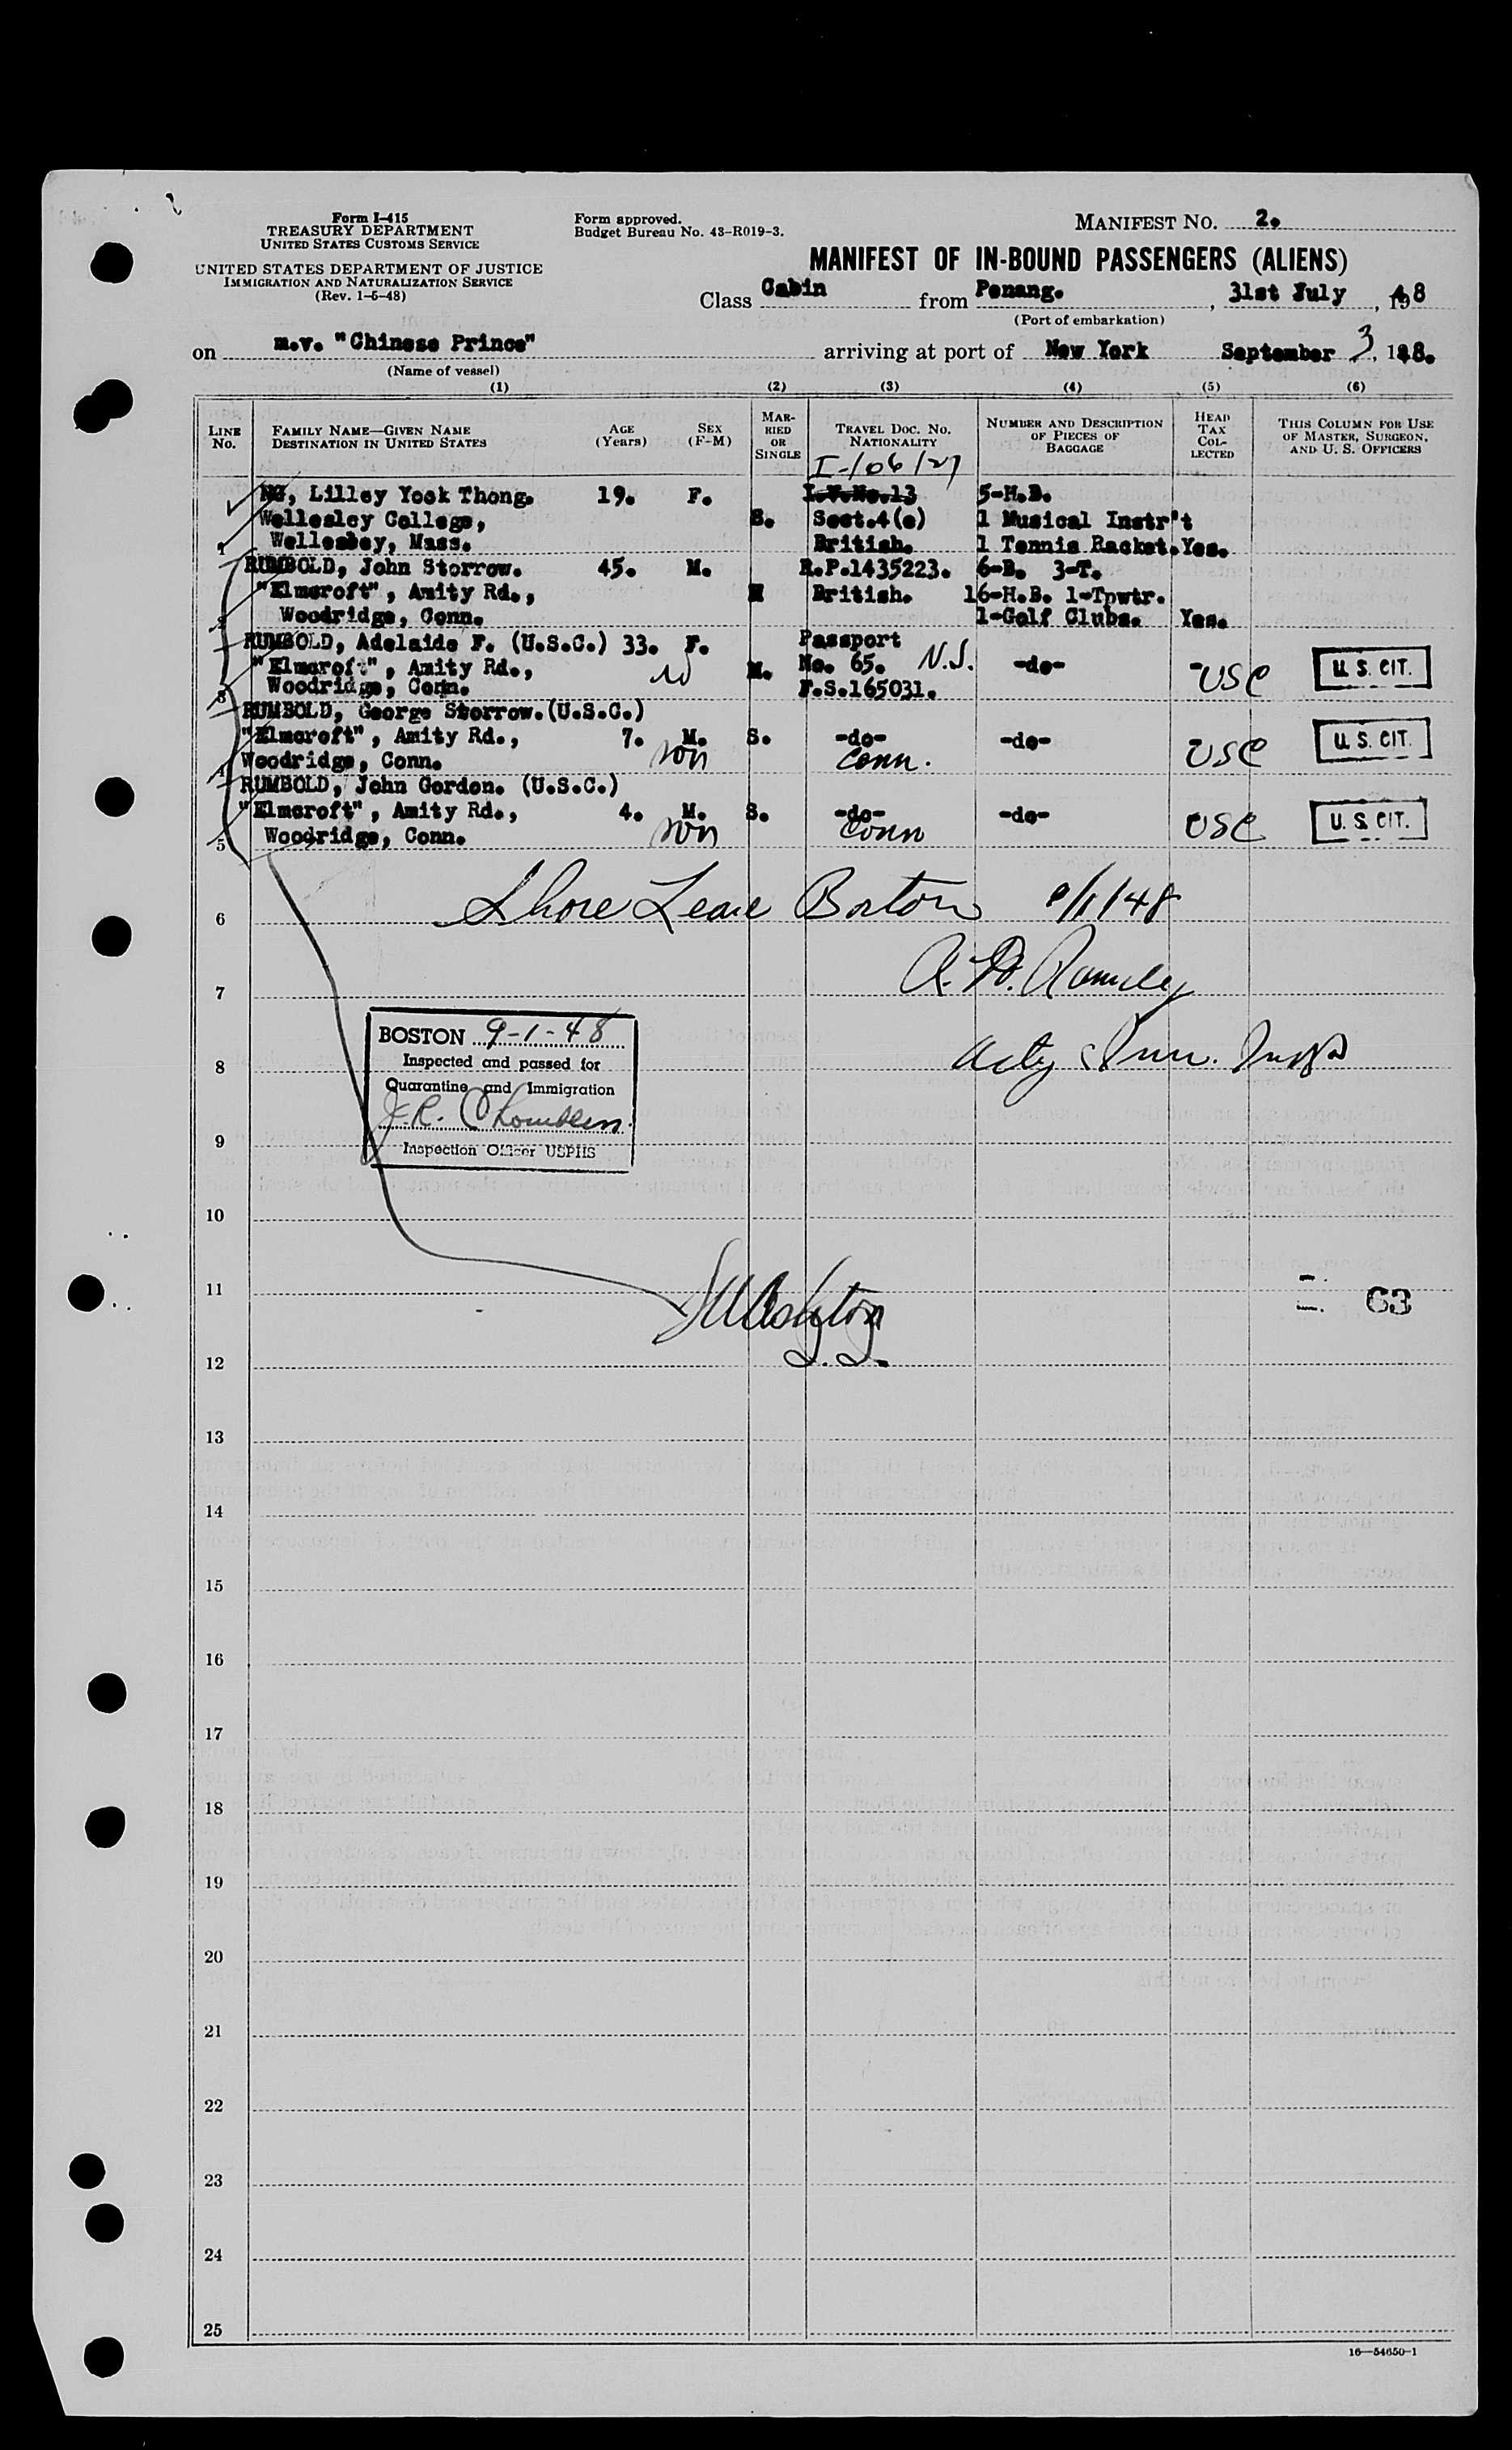 Form I-415
TREASURY DEPARTMENT
UNITED STATES CUSTOMS SERVICE
UNITED STATES DEPARTMENT OF JUSTICE
IMMIGRATION AND NATURALIZATION SERVICE
(Rev. 1-5-48)
Form approved.
Budget Bureau No. 43-R019-3.
MANIFEST NO. 2.
MANIFEST OF IN-BOUND PASSENGERS (ALIENS)
Class Cabin from Penang. , 31st July , 1948
(Port of embarkation)
on m.v. "Chinese Prince" arriving at port of New York September 3, 1948.
(Name of vessel)
(1) (2) (3) (4) (5) (6)
LINE No.
FAMILY NAME—GIVEN NAME
DESTINATION IN UNITED STATES
AGE (Years)
SEX (F-M)
MARRIED OR SINGLE
TRAVEL DOC. NO.
NATIONALITY
NUMBER AND DESCRIPTION OF PIECES OF BAGGAGE
HEAD TAX COLLECTED
THIS COLUMN FOR USE OF MASTER, SURGEON, AND U. S. OFFICERS
I-106127
NG, Lilley Yook Thong. 19. F. I.V.No.13 5-H.B.
Wellesley College, S. Sect.4(e) 1 Musical Instr't
1 Wellesley, Mass. British. 1 Tennis Racket. Yes.
RUMBOLD, John Storrow. 45. M. R.P.1435223. 6-B. 3-T.
"Elmcroft", Amity Rd., M British. 16-H.B. 1-Tpwtr.
2 Woodridge, Conn. 1-Golf Clubs. Yes.
RUMBOLD, Adelaide F. (U.S.C.) 33. F. Passport
"Elmcroft", Amity Rd., M. No. 65. N.J. -do- USC U.S. CIT.
3 Woodridge, Conn. F.S.165031.
RUMBOLD, George Storrow.(U.S.C.)
"Elmcroft", Amity Rd., 7. M. S. -do- -do- USC U.S. CIT.
4 Woodridge, Conn. son Conn.
RUMBOLD, John Gordon. (U.S.C.)
"Elmcroft", Amity Rd., 4. M. S. -do- -do- USC U.S. CIT.
5 Woodridge, Conn. son Conn
6 Shore Leave Boston 9/1/48
7
BOSTON 9-1-48
Inspected and passed for
8
Quarantine and Immigration
J.R.
9
Inspection Officer USPHS
10
11
63
12
13
14
15
16
17
18
19
20
21
22
23
24
25
16—54650-1